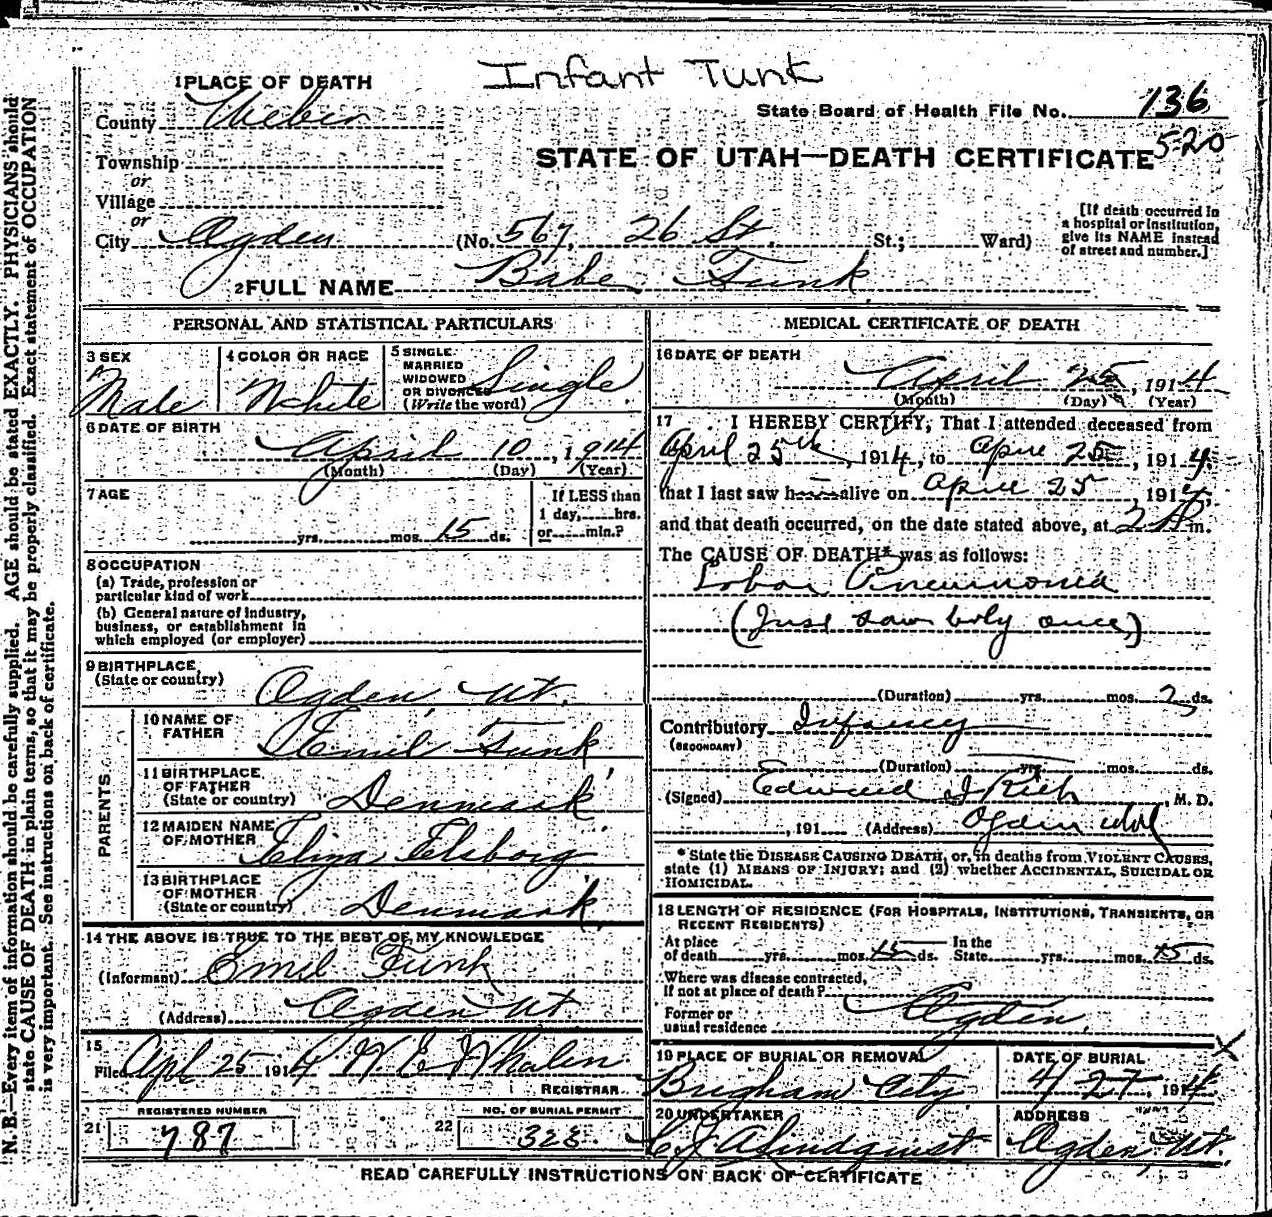 Infant Funk
1 PLACE OF DEATH
County Weber
State Board of Health File No. 136
520
STATE OF UTAH—DEATH CERTIFICATE
Township
or
Village
or
City Ogden (No. 567, 26 St. St.; Ward)
[If death occurred in
a hospital or institution,
give its NAME instead
of street and number.]
2 FULL NAME Babe Funk
PERSONAL AND STATISTICAL PARTICULARS
3 SEX
Male
4 COLOR OR RACE
White
5 SINGLE
MARRIED
WIDOWED
OR DIVORCED
(Write the word)
Single
6 DATE OF BIRTH
April 10, 1914
(Month) (Day) (Year)
7 AGE
yrs. mos. 15 ds.
If LESS than
1 day, hrs.
or min.?
8 OCCUPATION
(a) Trade, profession or
particular kind of work
(b) General nature of industry,
business, or establishment in
which employed (or employer)
9 BIRTHPLACE
(State or country)
Ogden, Ut.
PARENTS
10 NAME OF
FATHER
Emil Funk
11 BIRTHPLACE
OF FATHER
(State or country)
Denmark
12 MAIDEN NAME
OF MOTHER
Eliza Elsborg
13 BIRTHPLACE
OF MOTHER
(State or country)
Denmark
14 THE ABOVE IS TRUE TO THE BEST OF MY KNOWLEDGE
(Informant) Emil Funk
(Address) Ogden Ut.
15
Filed Apl 25 1914 W E Whalen
REGISTRAR
REGISTERED NUMBER
21 787
NO. OF BURIAL PERMIT
22 328
MEDICAL CERTIFICATE OF DEATH
16 DATE OF DEATH
April 25, 1914
(Month) (Day) (Year)
17 I HEREBY CERTIFY, That I attended deceased from
April 25th, 1914, to April 25, 1914,
that I last saw h alive on April 25, 1914,
and that death occurred, on the date stated above, at 2 m.
The CAUSE OF DEATH* was as follows:
Lobar Pneumonia
(Just saw baby once)
(Duration) yrs. mos. 2 ds.
Contributory Infancy
(SECONDARY)
(Duration) yrs. mos. ds.
(Signed) Edward I Rich, M. D.
, 191 (Address) Ogden Utah
*State the DISEASE CAUSING DEATH, or, in deaths from VIOLENT CAUSES,
state (1) MEANS OF INJURY; and (2) whether ACCIDENTAL, SUICIDAL OR
HOMICIDAL.
18 LENGTH OF RESIDENCE (FOR HOSPITALS, INSTITUTIONS, TRANSIENTS, OR
RECENT RESIDENTS)
At place
of death yrs. mos. 15 ds.
In the
State yrs. mos. 15 ds.
Where was disease contracted,
if not at place of death?
Former or
usual residence
Ogden.
19 PLACE OF BURIAL OR REMOVAL
Brigham City
DATE OF BURIAL X
4/27, 1914
20 UNDERTAKER
C J A Lindquist
ADDRESS
Ogden, Ut.
READ CAREFULLY INSTRUCTIONS ON BACK OF CERTIFICATE
N. B.—Every item of information should be carefully supplied. AGE should be stated EXACTLY. PHYSICIANS should
state CAUSE OF DEATH in plain terms, so that it may be properly classified. Exact statement of OCCUPATION
is very important. See instructions on back of certificate.